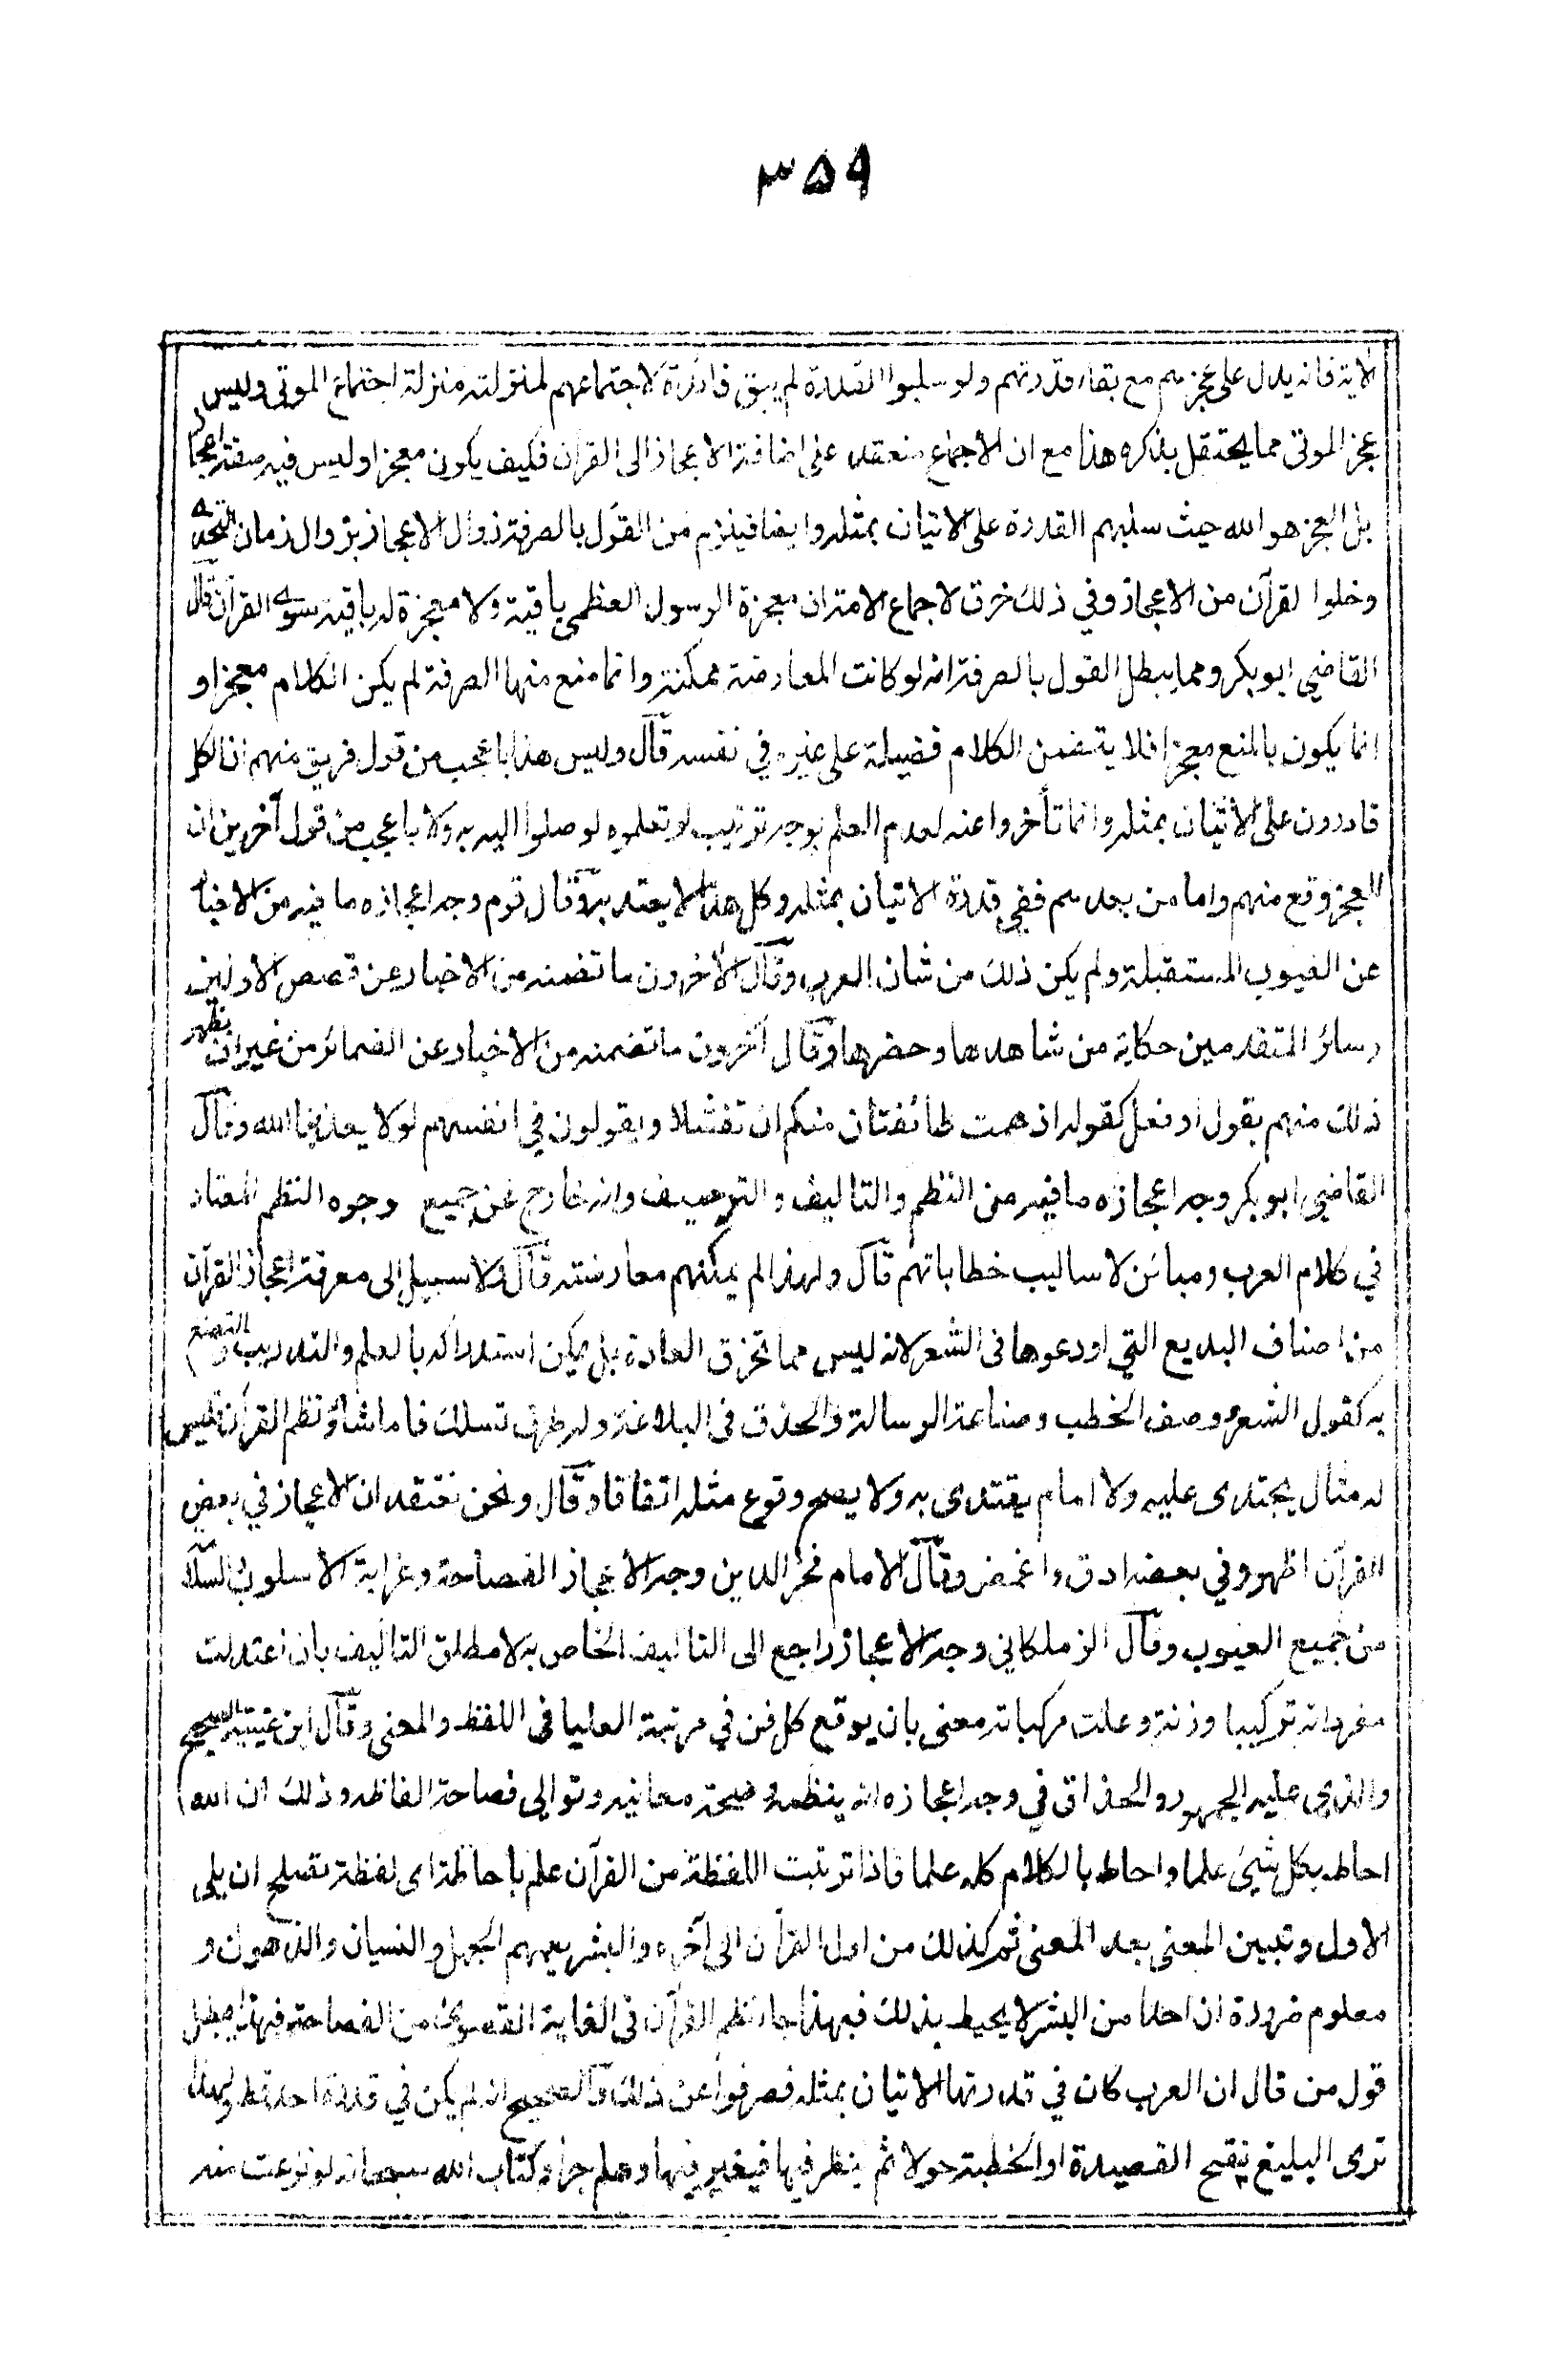 ۳۵۹
الاية فانه يدل على عجزهم مع بقاء قدرتهم ولو سلبوا القدرة لم يبق فائدة لاجتماعهم لمنزلته منزلة اجتماع الموتى وليس
عجز الموتى مما يحتفل بذكره هذا مع ان الاجماع منعقد على اضافة الاعجاز الى القرآن فكيف يكون معجزا وليس فيه صفة اعجاز
بل المعجز هو الله حيث سلبهم القدرة على الاتيان بمثله وايضا فيلزم من القول بالصرفة زوال الاعجاز بزوال زمان التحدى
وخلو القرآن من الاعجاز وفي ذلك خرق لاجماع الامة ان معجزة الرسول العظمى باقية ولا معجزة له باقية سوى القرآن قال
القاضي ابو بكر ومما يبطل القول بالصرفة انه لو كانت المعارضة ممكنة وانما منع منها الصرفة لم يكن الكلام معجزا و
انما يكون بالمنع معجزا فلا يتضمن الكلام فضيلة على غيره في نفسه قال وليس هذا باعجب من قول فريق منهم ان الكل
قادرون على الاتيان بمثله وانما تأخروا عنه لعدم العلم بوجه ترتيب لو تعلموه لوصلوا اليه به ولا باعجب من قول آخرين ان
العجز وقع منهم واما من بعدهم ففي قدرة الاتيان بمثله وكل هذا لا يعتد به وقال قوم وجه اعجازه ما فيه من الاخبار
عن الغيوب المستقبلة ولم يكن ذلك من شان العرب وقال الآخرون ما تضمنه من الاخبار عن قصص الاولين
وسائر المتقدمين حكاية من شاهدها وحضرها وقال آخرون ما تضمنه من الاخبار عن الضمائر من غير ان يظهر
ذلك منهم بقول او فعل كقوله اذ همت طائفتان منكم ان تفشلا ويقولون في انفسهم لولا يعذبنا الله وقال
القاضي ابو بكر وجه اعجازه ما فيه من النظم والتاليف والترصيف وانه خارج عن جميع وجوه النظم المعتاد
في كلام العرب ومبائن لاساليب خطاباتهم قال ولهذا لم يمكنهم معارضته قال ولا سبيل الى معرفة اعجاز القرآن
من اصناف البديع التي اودعوها في الشعر لانه ليس مما تخرق العادة بل يمكن استدراكه بالعلم والتدريب والتصنع
به كقول الشعر ووصف الخطب وصناعة الرسالة والحذق في البلاغة وله طرق تسلك فاما شاؤ نظم القرآن فليس
له مثال يحتذى عليه ولا امام يقتدى به ولا يصح وقوع مثله اتفاقا وقال ونحن نعتقد ان الاعجاز في بعض
القرآن اظهر وفي بعضه ادق واغمض وقال الامام فخر الدين وجه الاعجاز الفصاحة وغرابة الاسلوب والسلامة
من جميع العيوب وقال الزملكاني وجه الاعجاز راجع الى التاليف الخاص به لا مطلق التاليف بان اعتدلت
مفرداته تركيبا وزنة وعلت مركباته معنى بان يوقع كل فن في مرتبة العليا في اللفظ والمعنى وقال ابن عيينة الصحيح
والذي عليه الجمهور والحذاق في وجه اعجازه انه بنظمه وصحة معانيه وتوالي فصاحة الفاظه وذلك ان الله
احاط بكل شيئ علما واحاط بالكلام كله علما فاذا ترتبت اللفظة من القرآن علم باحاطة اى لفظة تصلح ان يلى
الاول وتبين المعنى بعد المعنى ثم كذلك من اول القرآن الى آخره والبشر يعمهم الجهل والنسيان والذهول و
معلوم ضرورة ان احدا من البشر لا يحيط بذلك فبهذا جاء نظم القرآن في الغاية القصوى من الفصاحة فبهذا يبطل
قول من قال ان العرب كان في قدرتها الاتيان بمثله فصرفوا عن ذلك والصحيح انه لم يكن في قدرة احد قط ولهذا
ترى البليغ ينقح القصيدة او الخطبة حولا ثم ينظر فيها فيغير فيها وهلم جرا وكتاب الله سبحانه لو نزعت منه